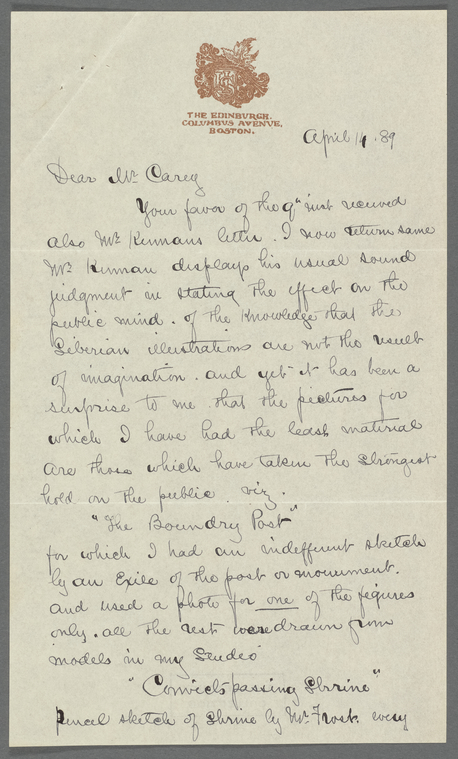 THE EDINBURGH.
COLUMBUS AVENUE,
BOSTON.
April 14. 89
Dear Mr Carey
Your favor of the 9" just received
also Mr Kennans letter. I now return same
Mr Kennan displays his usual sound
judgment in stating the effect on the
public mind. of the knowledge that the
Siberian illustrations are not the result
of imagination. and yet it has been a
surprise to me that the pictures for
which I have had the least material
are those which have taken the strongest
hold on the public. viz.
"The Boundry Post"
for which I had an indefferent sketch
by an Exile of the post or monument.
and used a photo for one of the figures
only. all the rest were drawn from
models in my Studio
"Convicts passing Shrine"
pencil sketch of Shrine by Mr Frost. every